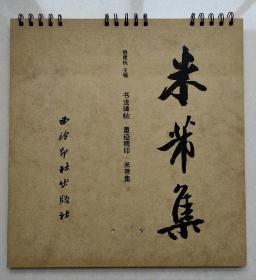 米芾集
杨建飞 主编
书法碑帖·墨迹精印·米芾集
西泠印社出版社